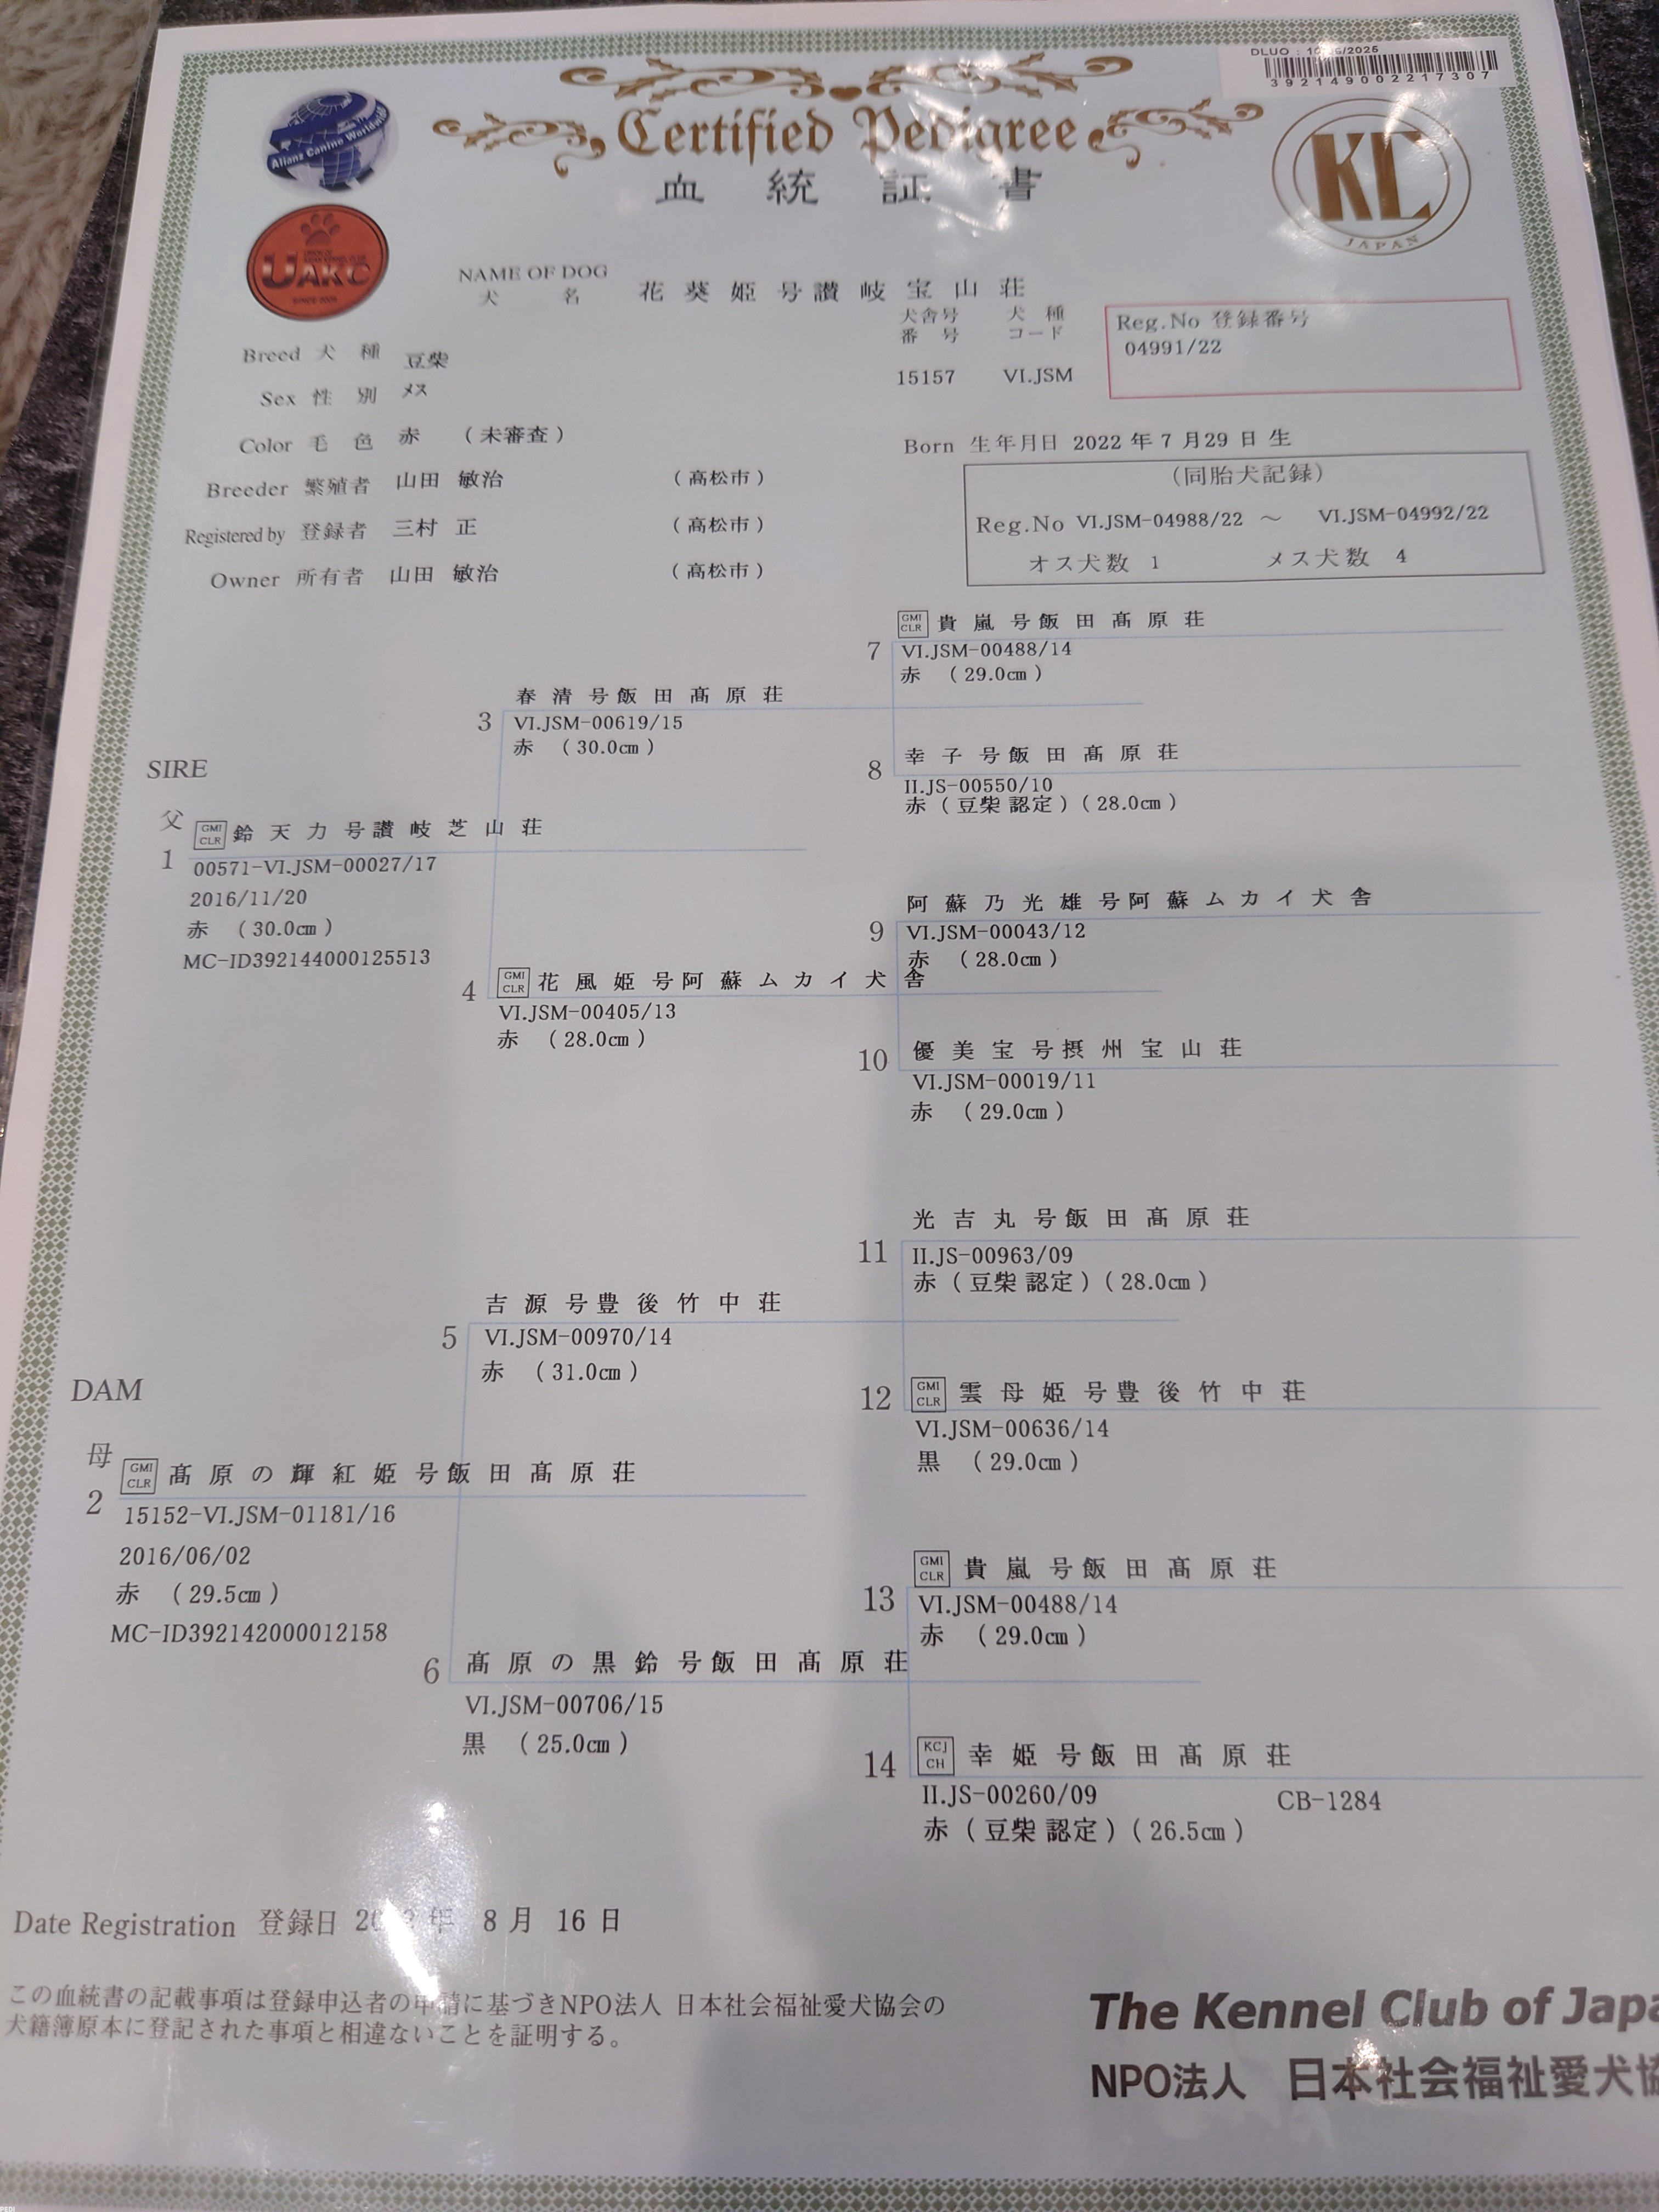 DLUO : 10/ /2025
392149002217307
Alianz Canine Worldwide
Certified Pedigree
血統証書
KC
JAPAN
UNION OF
ASIAN KENNEL CLUB
UAKC
SINCE 2005
NAME OF DOG
犬名 花葵姫号讃岐宝山荘
犬舎号 犬種
番号 コード
15157 VI.JSM
Reg.No 登録番号
04991/22
Breed 犬種 豆柴
Sex 性別 メス
Color 毛色 赤 (未審査)
Born 生年月日 2022年7月29日生
Breeder 繁殖者 山田 敏治 (高松市)
Registered by 登録者 三村 正 (高松市)
Owner 所有者 山田 敏治 (高松市)
(同胎犬記録)
Reg.No VI.JSM-04988/22 ～ VI.JSM-04992/22
オス犬数 1 メス犬数 4
SIRE
父
1 GMI CLR 鈴天力号讃岐芝山荘
00571-VI.JSM-00027/17
2016/11/20
赤 (30.0cm)
MC-ID392144000125513
3 春清号飯田髙原荘
VI.JSM-00619/15
赤 (30.0cm)
7 GMI CLR 貴嵐号飯田髙原荘
VI.JSM-00488/14
赤 (29.0cm)
8 幸子号飯田髙原荘
II.JS-00550/10
赤(豆柴認定)(28.0cm)
4 GMI CLR 花風姫号阿蘇ムカイ犬舎
VI.JSM-00405/13
赤 (28.0cm)
9 阿蘇乃光雄号阿蘇ムカイ犬舎
VI.JSM-00043/12
赤 (28.0cm)
10 優美宝号摂州宝山荘
VI.JSM-00019/11
赤 (29.0cm)
DAM
母
2 GMI CLR 髙原の輝紅姫号飯田髙原荘
15152-VI.JSM-01181/16
2016/06/02
赤 (29.5cm)
MC-ID392142000012158
5 吉源号豊後竹中荘
VI.JSM-00970/14
赤 (31.0cm)
11 光吉丸号飯田髙原荘
II.JS-00963/09
赤(豆柴認定)(28.0cm)
12 GMI CLR 雲母姫号豊後竹中荘
VI.JSM-00636/14
黒 (29.0cm)
6 髙原の黒鈴号飯田髙原荘
VI.JSM-00706/15
黒 (25.0cm)
13 GMI CLR 貴嵐号飯田髙原荘
VI.JSM-00488/14
赤 (29.0cm)
14 KCJ CH 幸姫号飯田髙原荘
II.JS-00260/09 CB-1284
赤(豆柴認定)(26.5cm)
Date Registration 登録日 年 8月 16日
この血統書の記載事項は登録申込者の申請に基づきNPO法人 日本社会福祉愛犬協会の
犬籍簿原本に登記された事項と相違ないことを証明する。
The Kennel Club of Japa
NPO法人 日本社会福祉愛犬協
PEDI